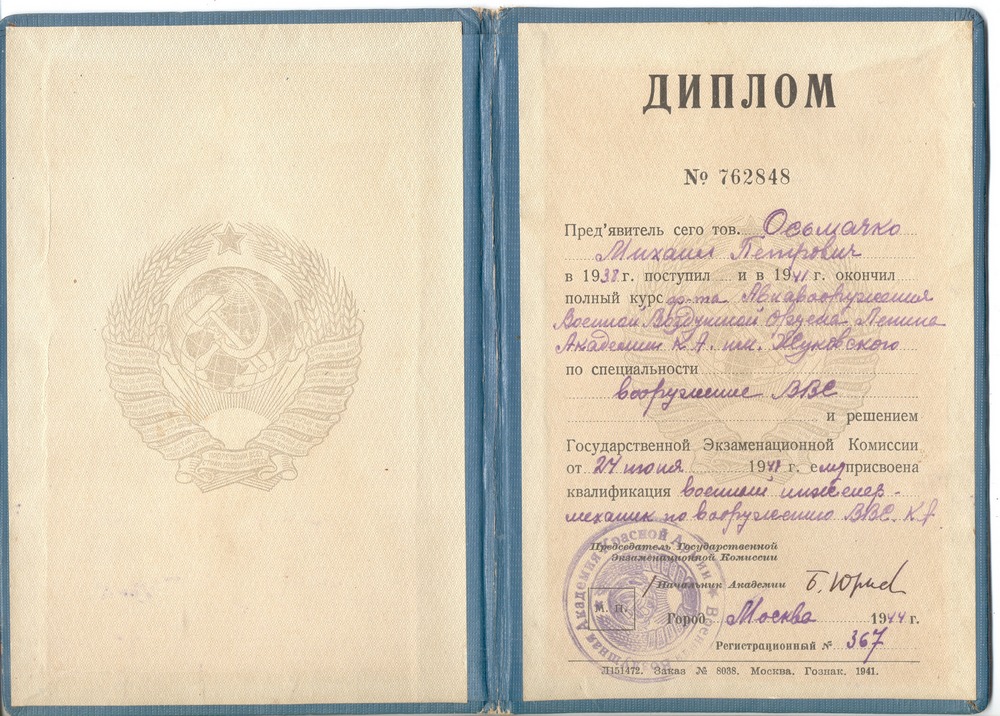 ДИПЛОМ
№ 762848
Пред'явитель сего тов. Осьмачко
Михаил Петрович
в 1938 г. поступил и в 1941 г. окончил
полный курс ф-та Авиавооружения
Военной Воздушной Ордена Ленина
Академии К.А. им. Жуковского
по специальности
вооружение ВВС
и решением
Государственной Экзаменационной Комиссии
от 24 июня 1941 г. ему присвоена
квалификация военный инженер-
механик по вооружению ВВС. К.А.
Председатель Государственной
Экзаменационной Комиссии
Начальник Академии
М. П.
Город Москва 1944 г.
Регистрационный № 367
Л151472. Заказ № 8038. Москва. Гознак. 1941.
Военная Воздушная Академия Красной Армии